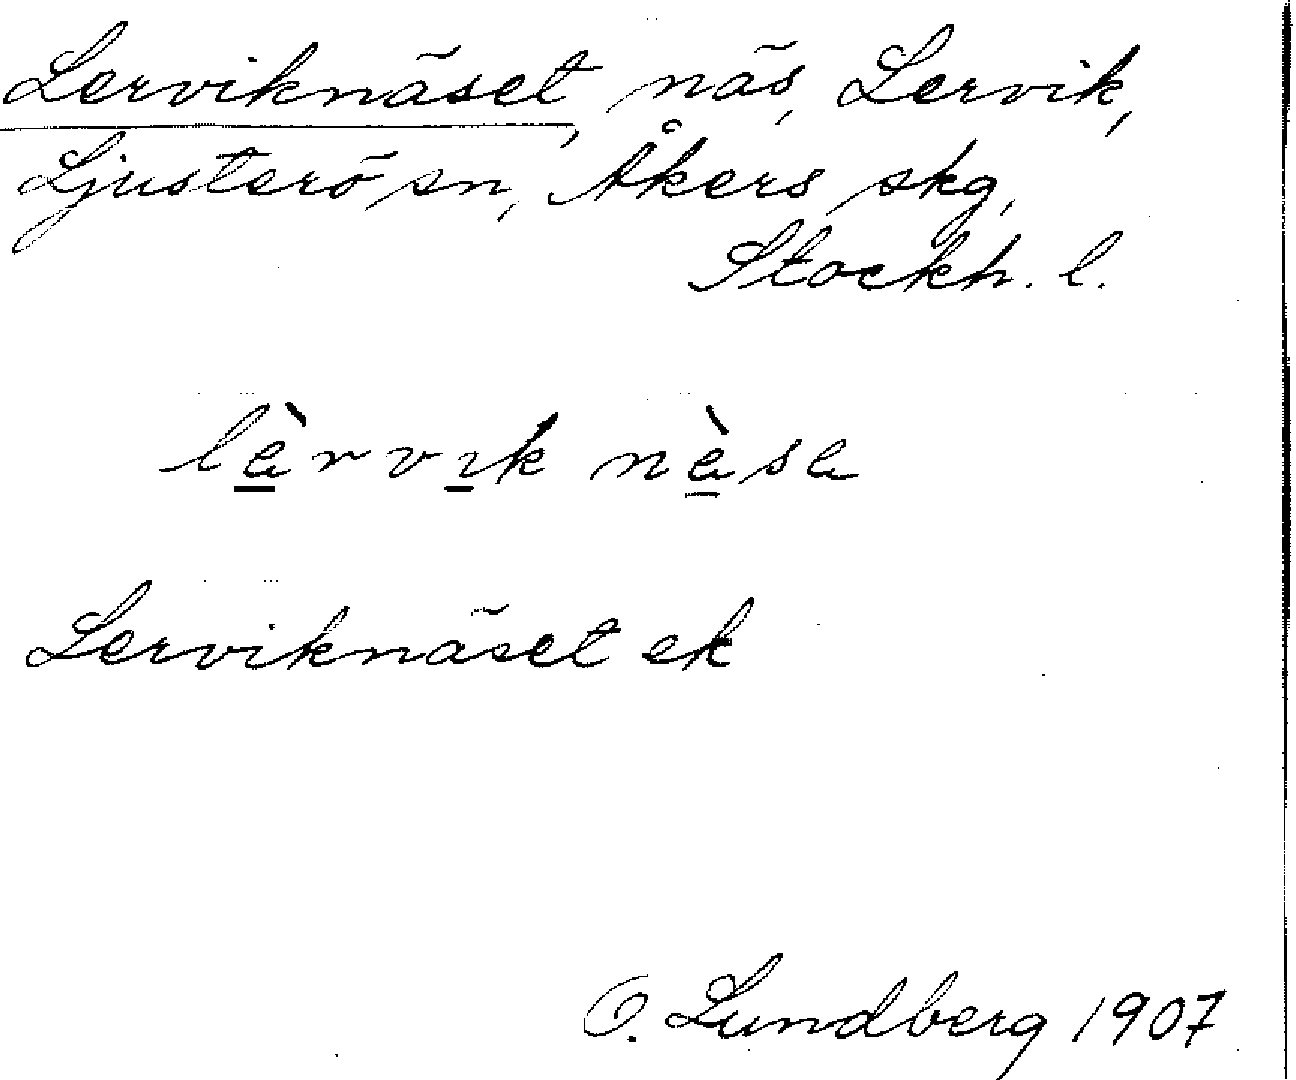 Lerviknäset, näs, Lervik,
Ljusterö sn, Åkers skg,
Stockh. l.
lèrvık nèsa
Lerviknäset ek
O. Lundberg 1907